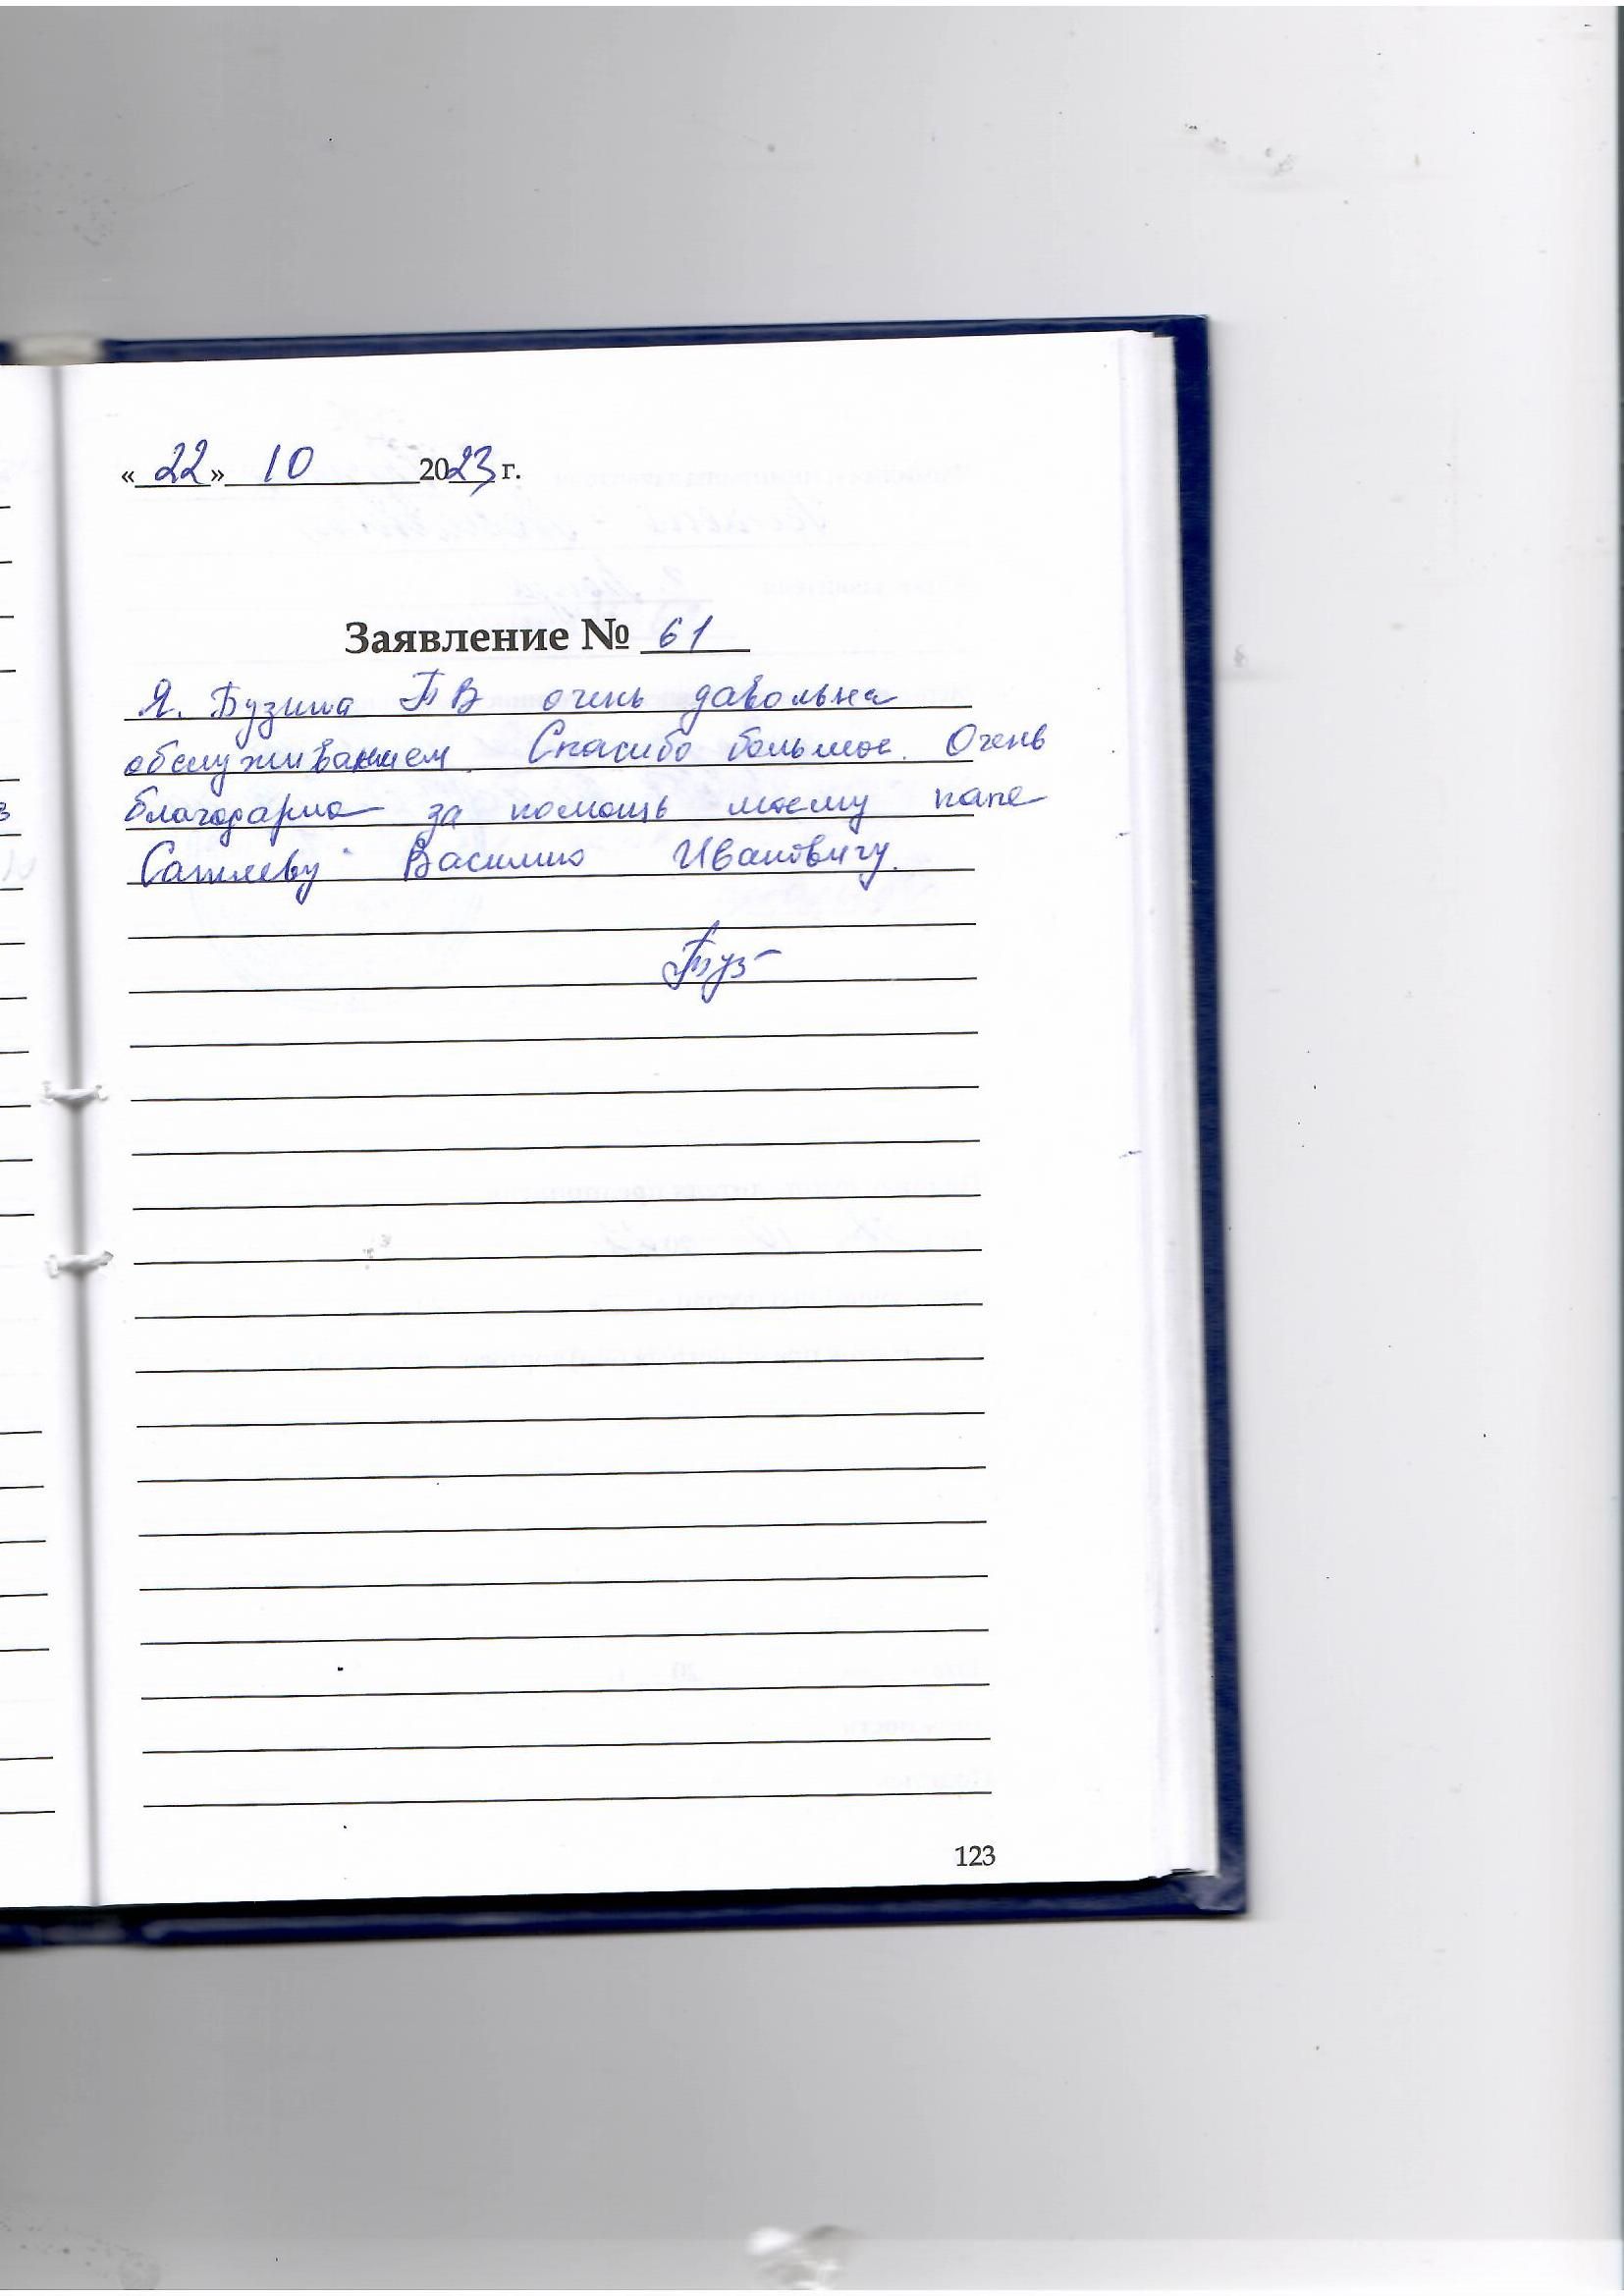 «22» 10 2023 г.
Заявление № 61
Я. Бузина Т В очень давольна
обслуживанием. Спасибо большое. Очень
благодарна за помощь моему папе
Василию Ивановичу.
Буз
123